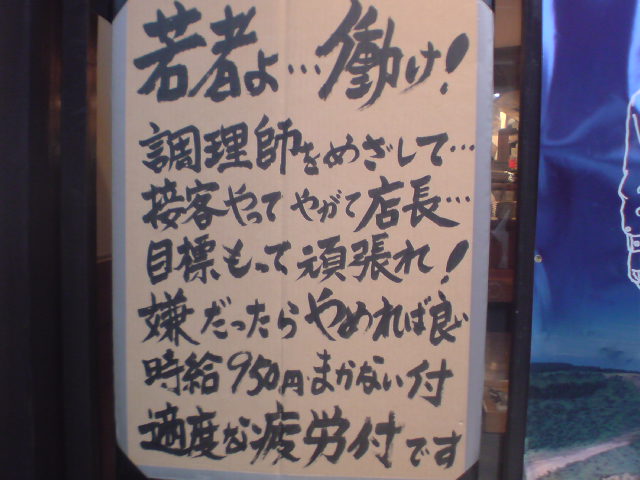 若者よ…働け!
調理師をめざして…
接客やってやがて店長…
目標もって頑張れ!
嫌だったらやめれば良い
時給950円・まかない付
適度な疲労付です